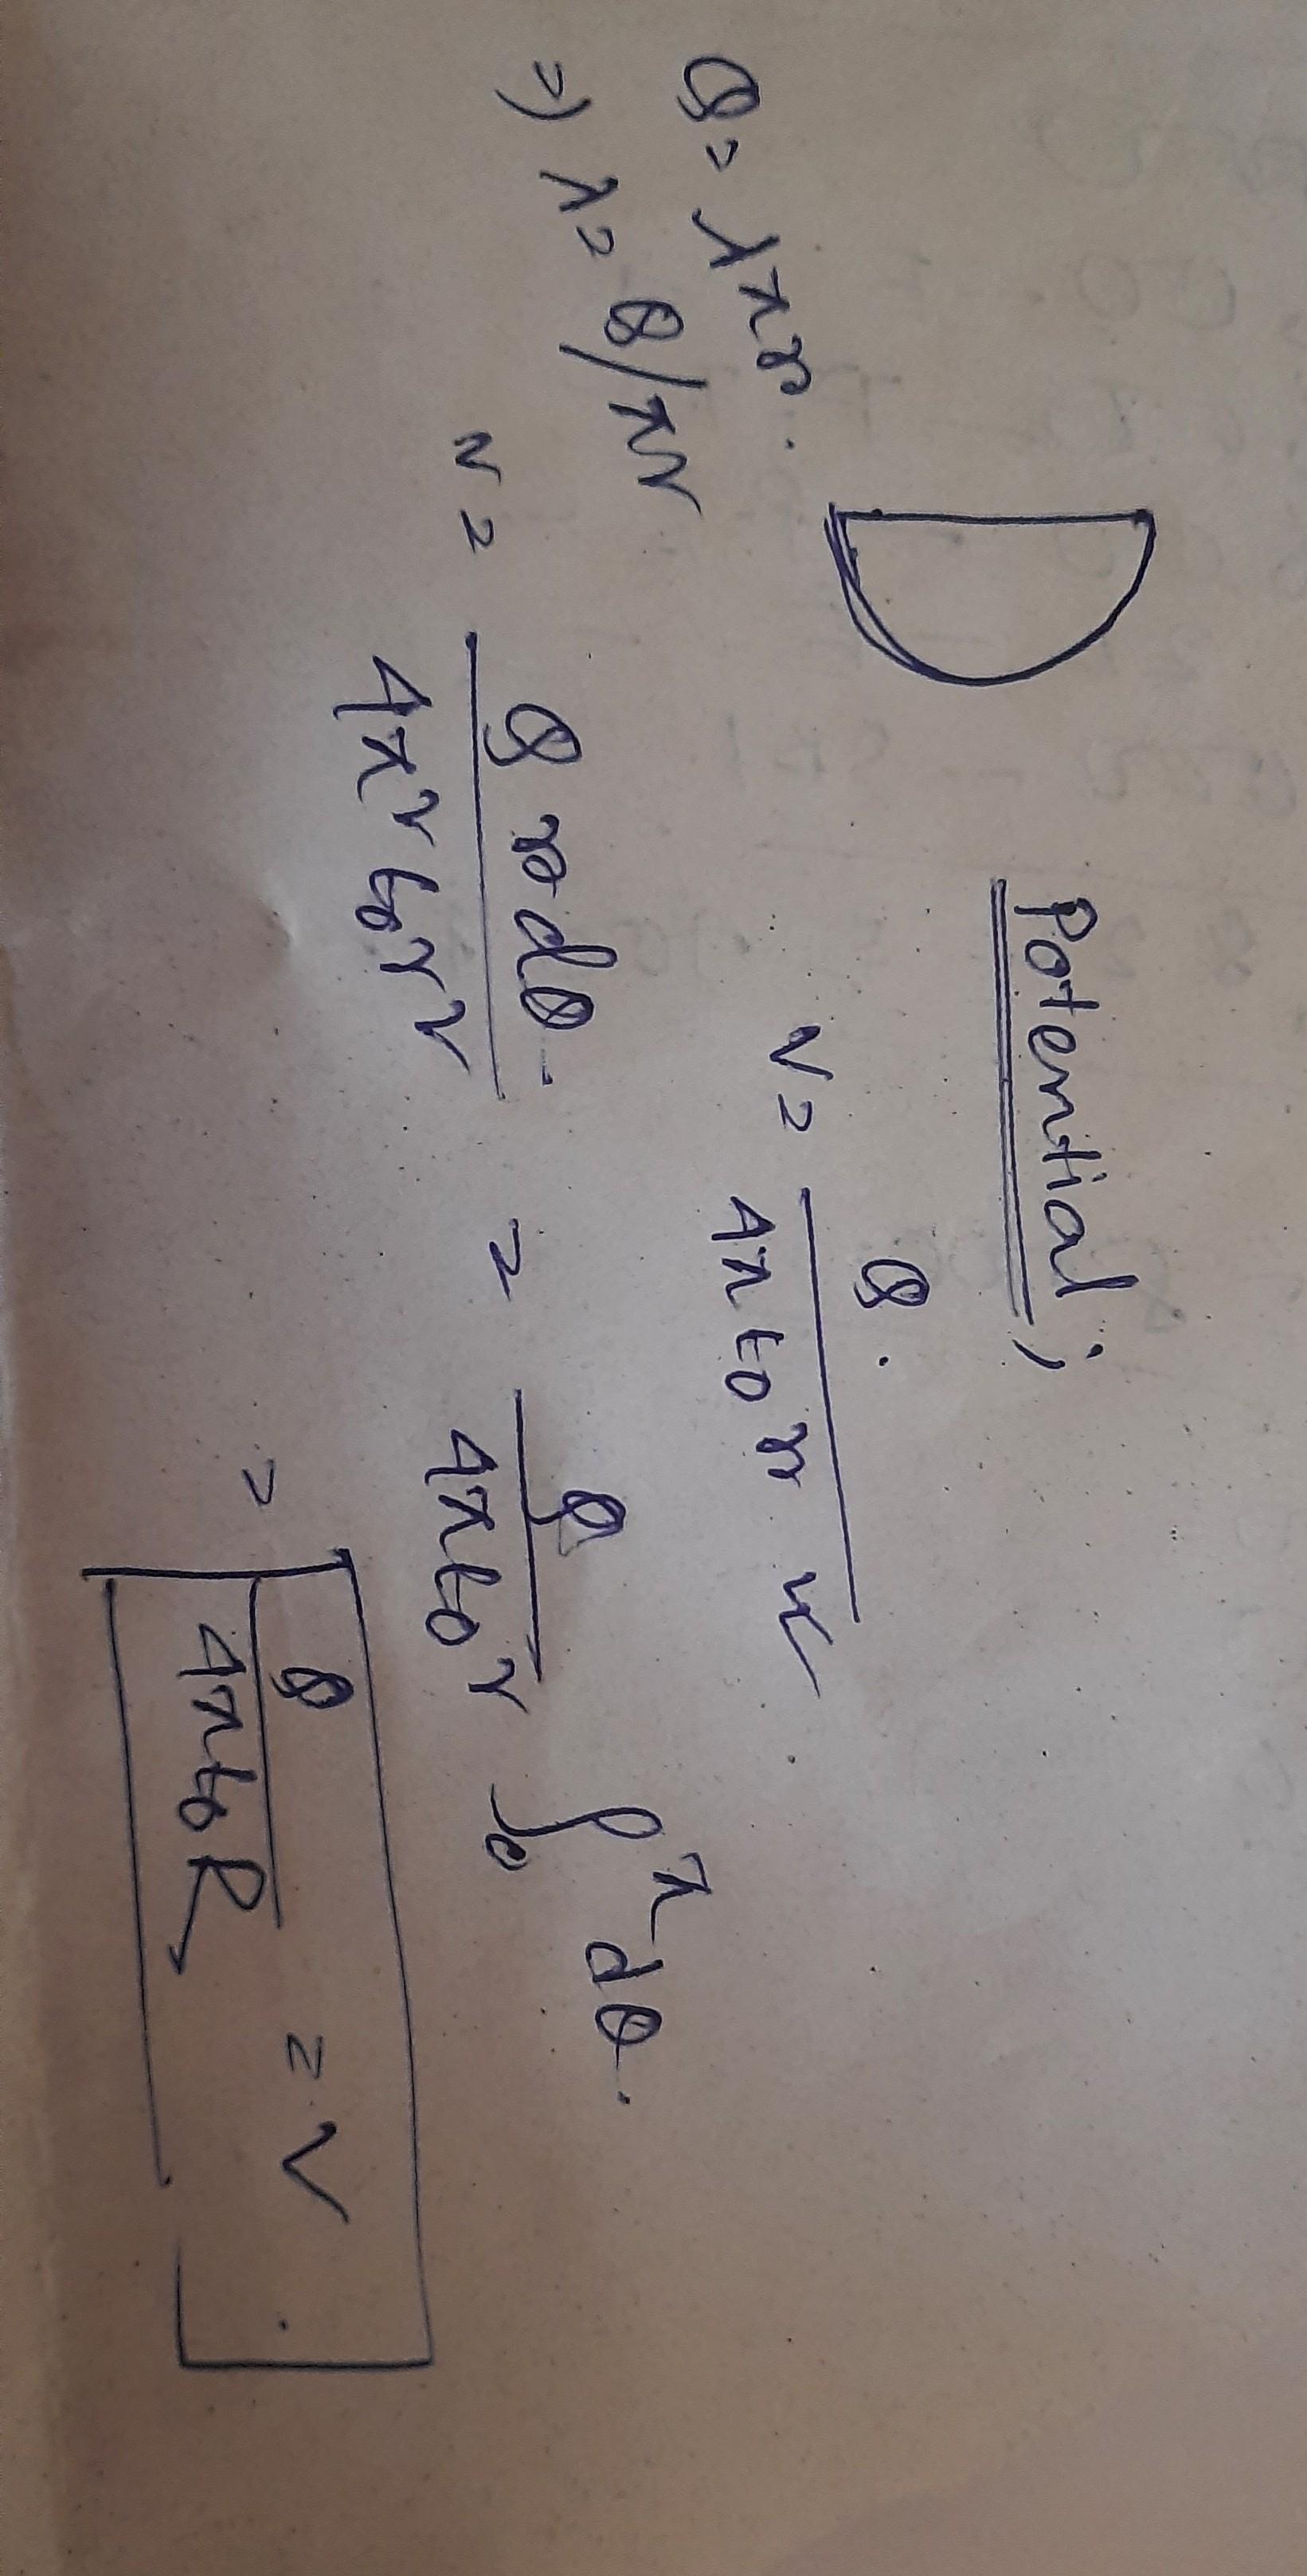 Potential;
V = Q / 4πε₀r
Q = λπr.
⇒ λ = Q/πr
V = Q r dθ / 4π²ε₀r² = Q / 4πε₀r ∫₀^π dθ.
= Q / 4πε₀R = V